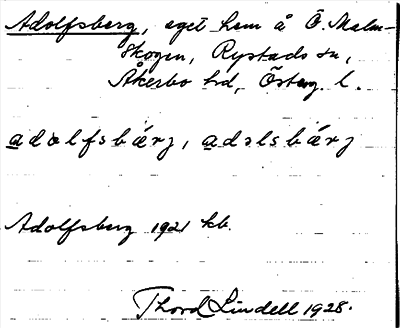 Adolfsberg, eget hem å Ö. Malm-
skogen, Rystads sn,
Åkerbo hd, Österg. l.
adolfsbærj, adɔlsbærj
Adolfsberg 1921 kb.
Thord Lindell 1928.